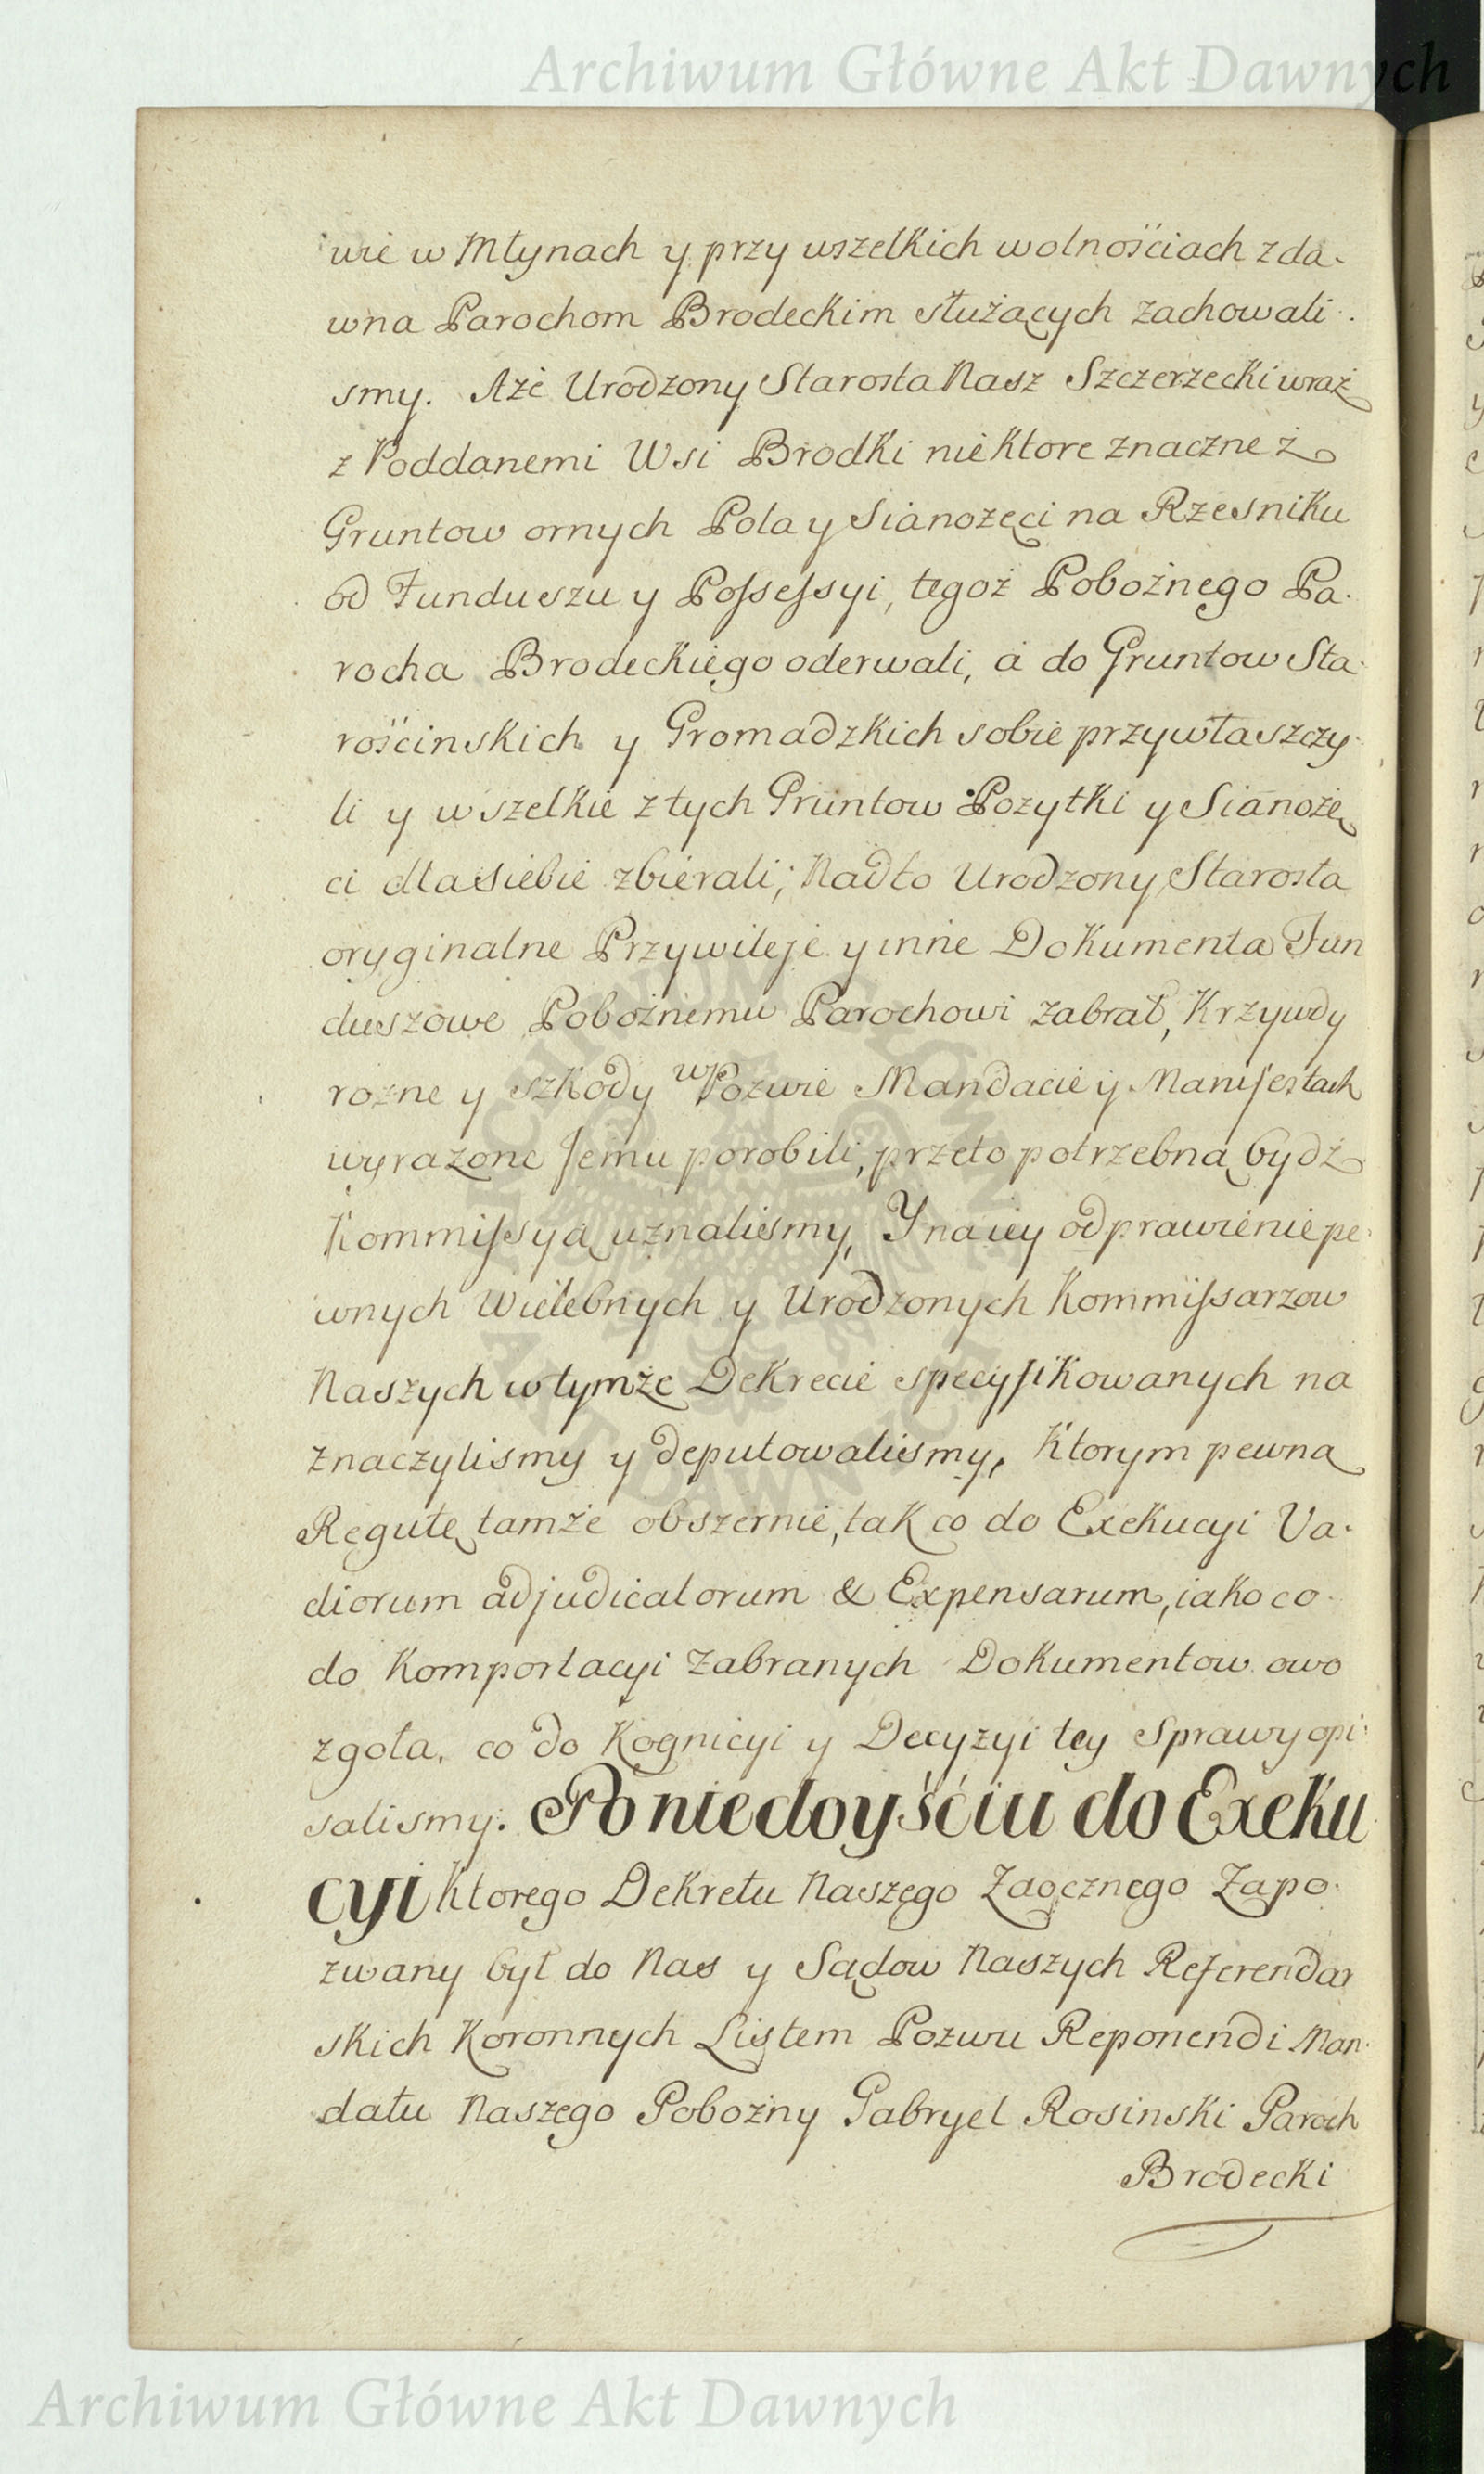 Archiwum Główne Akt Dawnych
wie w Młynach y przy wszelkich wolnościach z da-
wna Parochom Brodeckim służących zachowali-
smy. Aże Urodzony Starosta Nasz Szczerzecki wraz
z Poddanemi Wsi Brodki niektore znaczne z
Gruntow ornych Pola y Sianożęci na Rzesniku
od Funduszu y Possessyi, tegoż Pobożnego Pa-
rocha Brodeckiego oderwali, a do Gruntow Sta-
rościnskich y Gromadzkich sobie przywłaszczy-
li y wszelkie z tych Gruntow Pozytki y Sianożę
ci dla siebie zbierali; Nadto Urodzony Starosta
oryginalne Przywileje y inne Dokumenta Fun
duszowe Pobożnemu Parochowi zabrał, Krzywdy
rożne y szkody w Pozwie Mandacie y Manifestach
wyrażone Jemu porobili, przeto potrzebną bydź
Kommissyą uznalismy, Y na iey odprawienie pe-
wnych Wielebnych y Urodzonych Kommissarzow
Naszych w tymże Dekrecie specyfikowanych na
znaczylismy y deputowalismy, Ktorym pewną
Regułę tamże obszernie, tak co do Exekucyi Va-
diorum adjudicatorum & Expensarum, iako co
do Komportacyi Zabranych Dokumentow owo
zgoła, co do Kognicyi y Decyzyi tey Sprawy opi-
salismy. Po niedoyściu do Exeku
cyi ktorego Dekretu Naszego Zaocznego Zapo-
zwany był do Nas y Sądow Naszych Referendar
skich Koronnych Listem Pozwu Reponendi Man-
datu Naszego Pobożny Gabryel Rosinski Paroch
Brodecki
Archiwum Główne Akt Dawnych